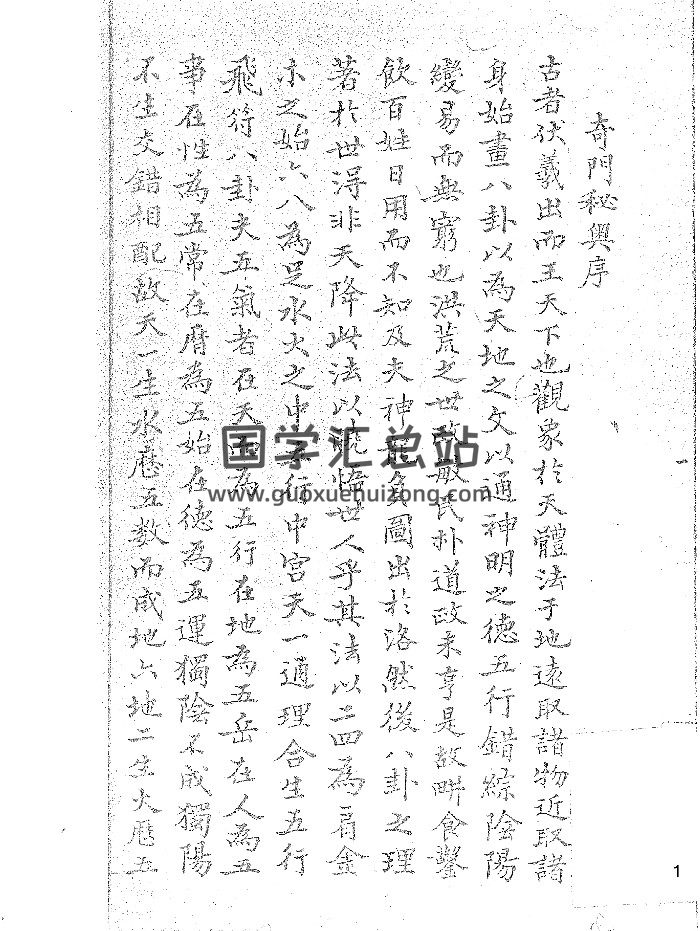 奇門秘奥序
古者伏羲出而王天下也觀象於天體法于地遠取諸物近取諸
身始畫八卦以為天地之文以通神明之德五行錯綜陰陽
變易而無窮也洪荒之世政敏民朴道政未亨是故畊食鑿
飲百姓日用而不知及夫神龍負圖出於洛然後八卦之理
著於世得非天降此法以曉臨世人乎其法以二四為肩金
木之始六八為足水火之中五行中宫天一遁理合生五行
飛符八卦夫五氣者在天而為五行在地為五岳在人為五
事在性為五常在曆為五始在德為五運獨陰不成獨陽
不生交錯相配故天一生水歷五数而成地六地二生火歷五
国学汇总站
www.guoxuehuizong.com
1